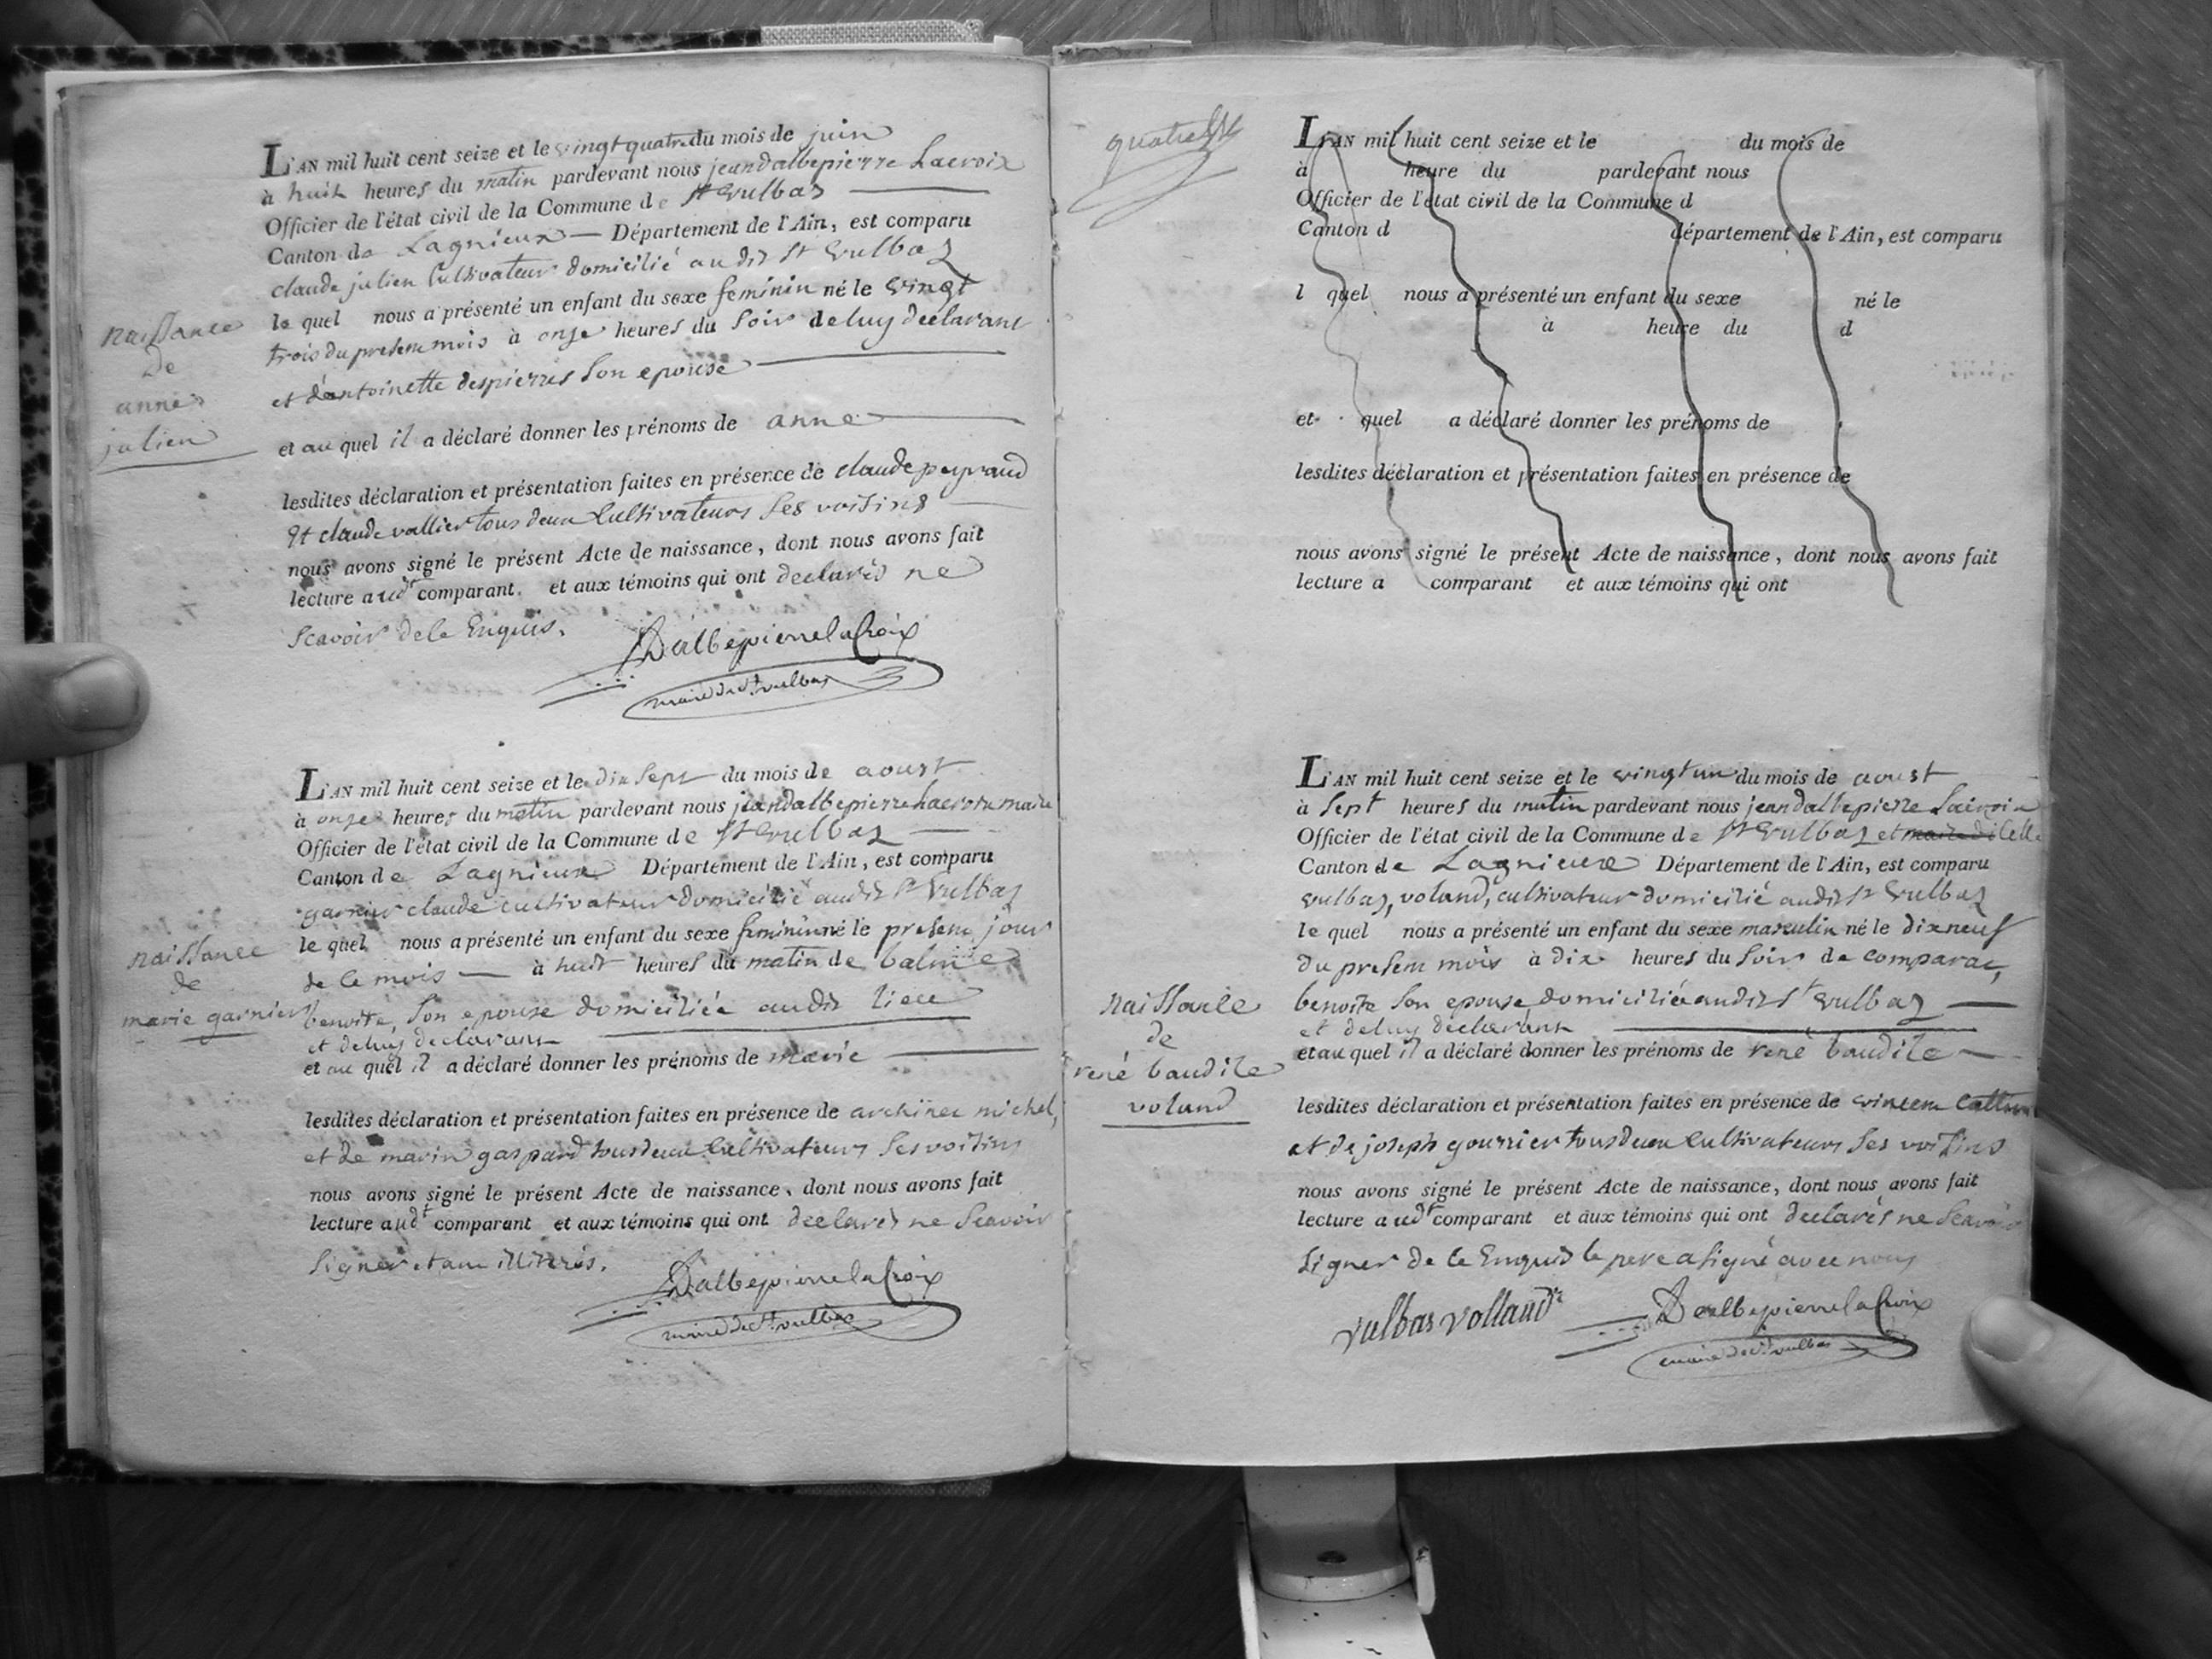 L'AN mil huit cent seize et le vingt quatre du mois de juin
à huit heures du matin pardevant nous jean dalbepierre Lacroix
Officier de l'état civil de la Commune de St Vulbas
Canton de Lagnieux Département de l'Ain, est comparu
claude julien Cultivateur domicilié au dit St Vulbas
le quel nous a présenté un enfant du sexe feminin né le vingt
trois du present mois à onze heures du soir de luy declarant
et d'antoinette despierres son epouse
et au quel il a déclaré donner les prénoms de anne
lesdites déclaration et présentation faites en présence de claude peyraud
Et claude vallier tous deux Cultivateurs ses voisins
nous avons signé le présent Acte de naissance, dont nous avons fait
lecture aud.t comparant. et aux témoins qui ont declarés ne
scavoir de ce Enquis.
Dalbepierrelacroix
maire de St vulbas
naissance
de
anne
julien
L'AN mil huit cent seize et le dix sept du mois de aoust
à onze heures du matin pardevant nous jean dalbepierre Lacroix maire
Officier de l'état civil de la Commune de St Vulbas
Canton de Lagnieux Département de l'Ain, est comparu
garnier claude cultivateur domicilié au dit St Vulbas
le quel nous a présenté un enfant du sexe feminin né le present jour
de ce mois à huit heures du matin de balme
benoite, son epouse domiciliée au dit lieu
et de luy declarant
et au quel il a déclaré donner les prénoms de marie
lesdites déclaration et présentation faites en présence de michel,
et de marin gaspard tous deux Cultivateurs ses voisins
nous avons signé le présent Acte de naissance, dont nous avons fait
lecture aud.t comparant et aux témoins qui ont declarés ne scavoir
signer etant illiterés.
Dalbepierrelacroix
maire de St vulbas
naissance
de
marie garnier
L'AN mil huit cent seize et le du mois de
à heure du pardevant nous
Officier de l'état civil de la Commune d
Canton d département de l'Ain, est comparu
l quel nous a présenté un enfant du sexe né le
à heure du d
et quel a déclaré donner les prénoms de
lesdites déclaration et présentation faites en présence de
nous avons signé le présent Acte de naissance, dont nous avons fait
lecture a comparant et aux témoins qui ont
L'AN mil huit cent seize et le vingt un du mois de aoust
à sept heures du matin pardevant nous jean dalbepierre Lacroix
Officier de l'état civil de la Commune de St Vulbas et
Canton de Lagnieux Département de l'Ain, est comparu
vulbas, voland, cultivateur domicilié au dit St Vulbas
le quel nous a présenté un enfant du sexe masculin né le dix neuf
du present mois à dix heures du soir de
benoite son epouse domiciliée au dit St Vulbas
et de luy declarant
et au quel il a déclaré donner les prénoms de rené baudile
lesdites déclaration et présentation faites en présence de vincent
et de joseph gourrier tous deux Cultivateurs ses voisins
nous avons signé le présent Acte de naissance, dont nous avons fait
lecture aud.t comparant et aux témoins qui ont declarés ne scavoir
signer de ce Enquis le pere a signé avec nous
vulbas volland
Dalbepierrelacroix
maire de St vulbas
naissance
de
rené baudile
voland